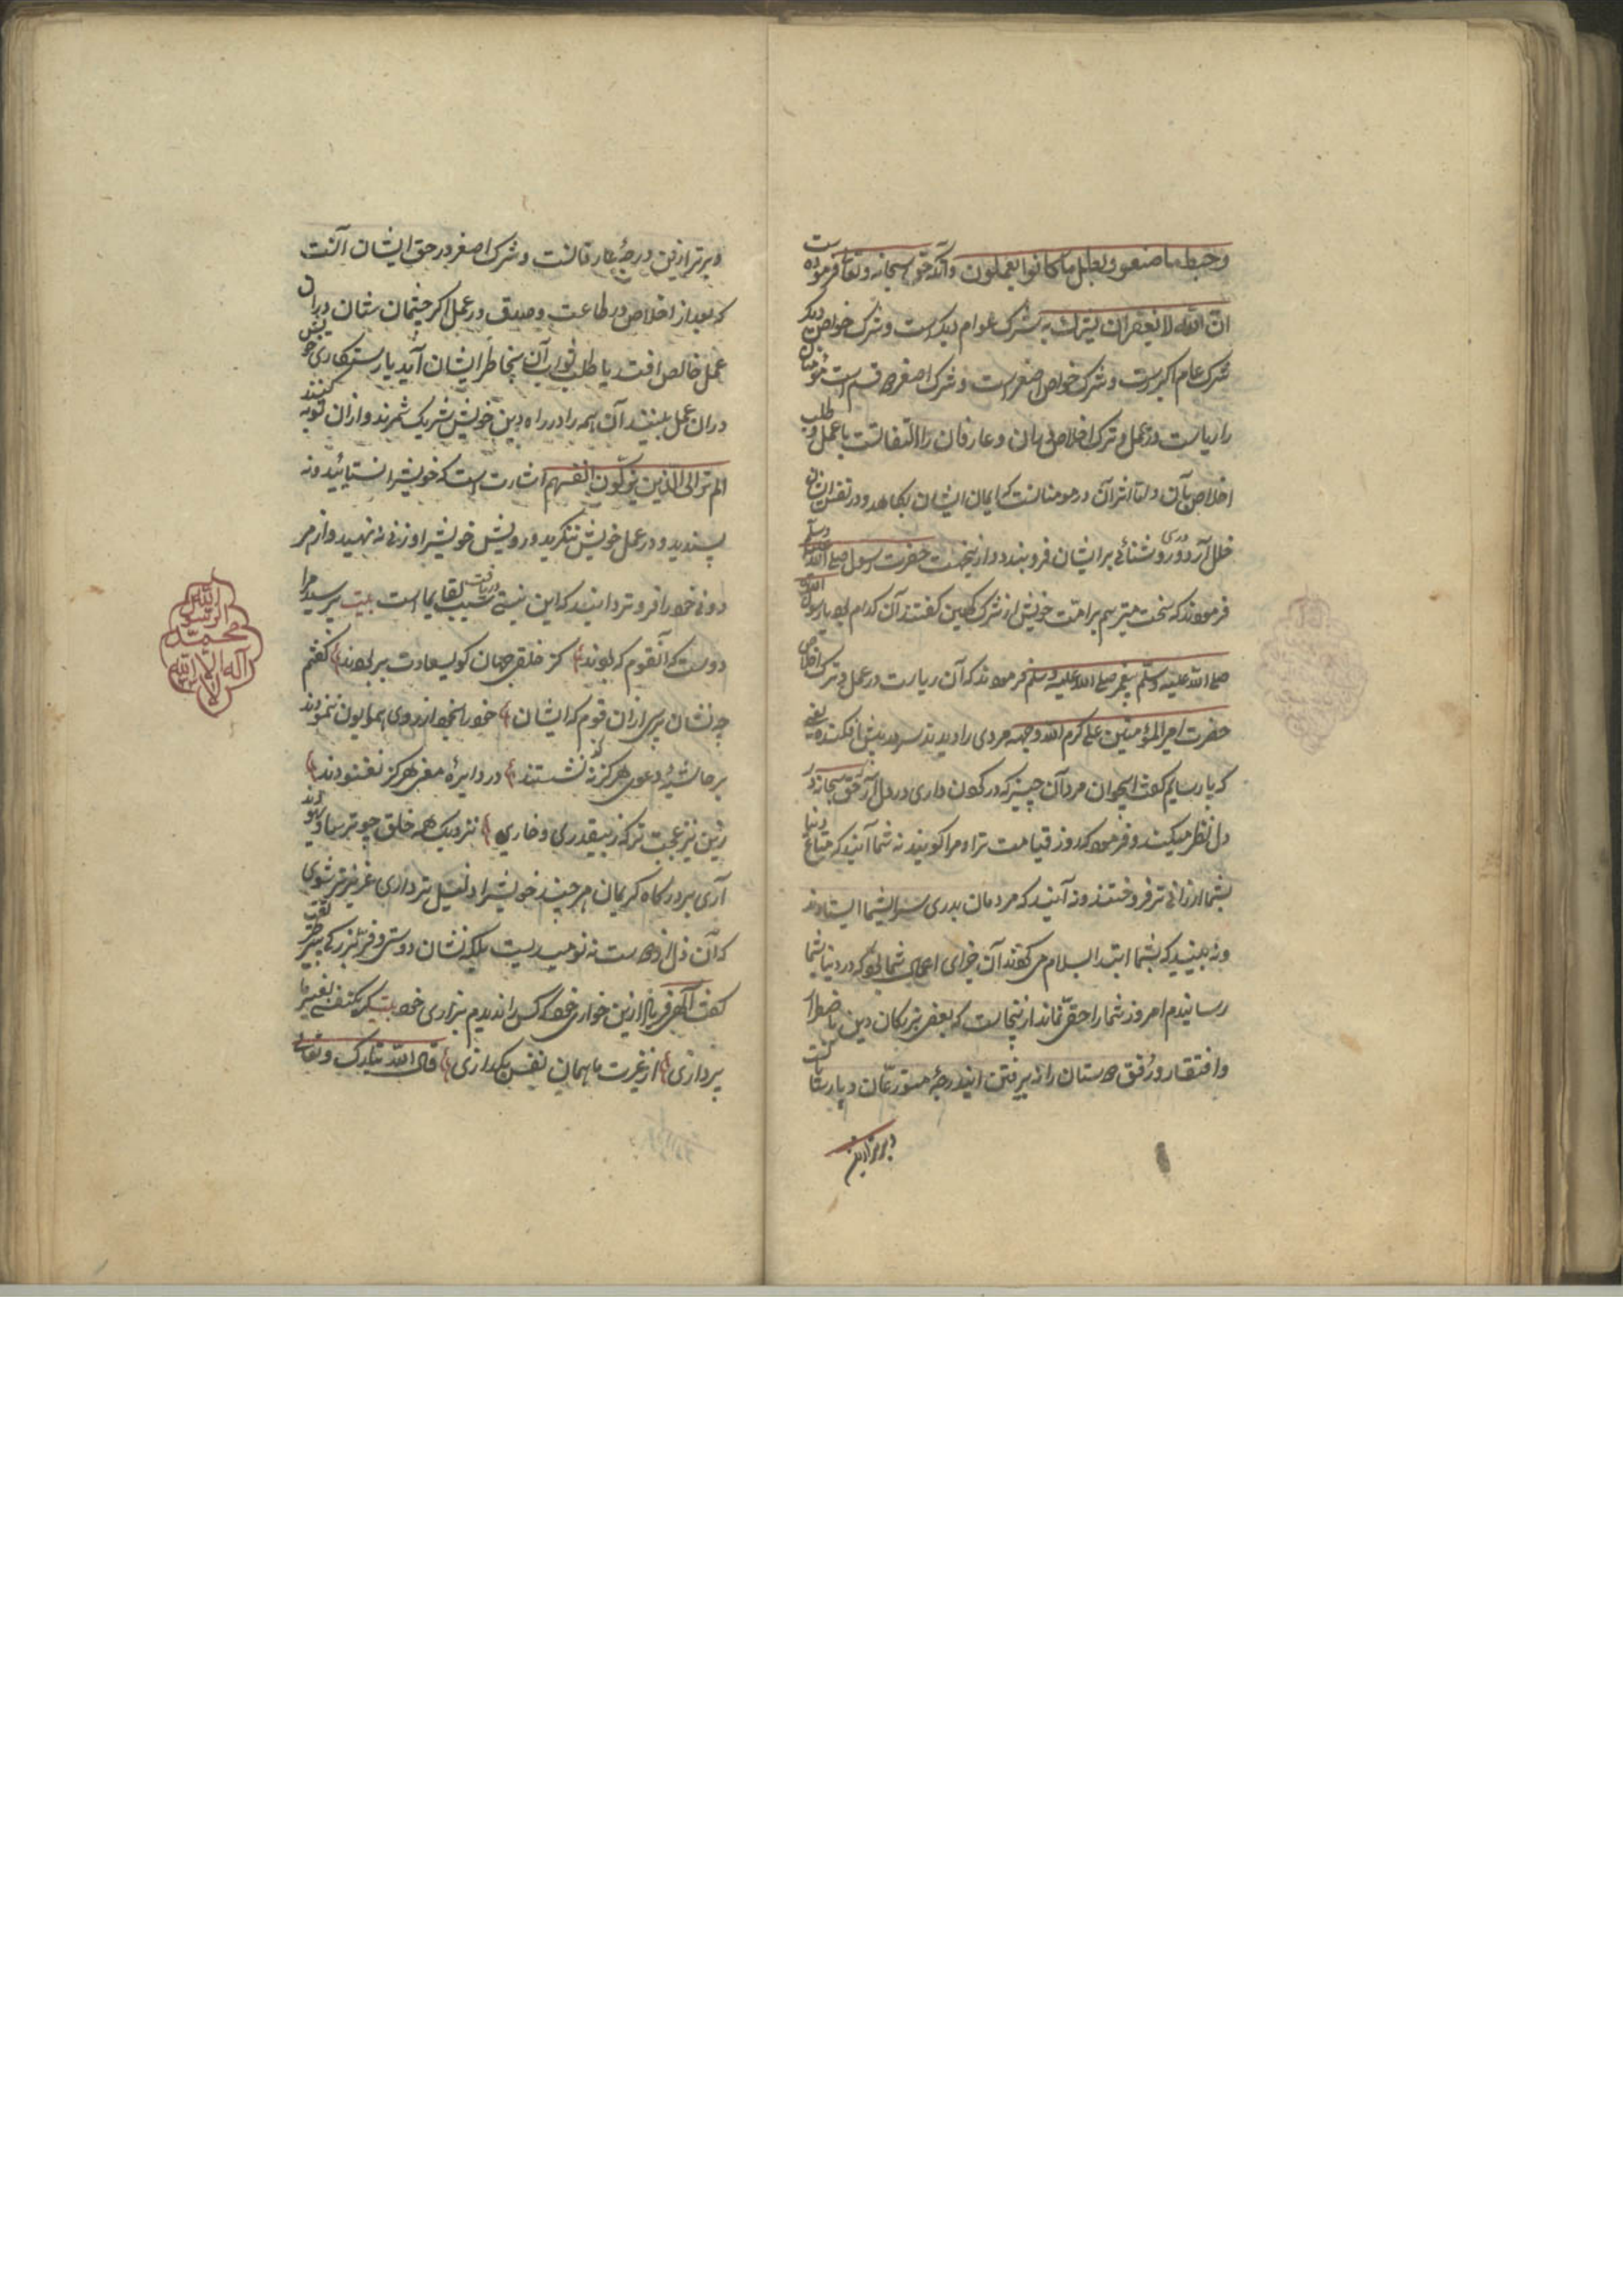 و حبط ما صنعوا و بطل ما کانوا یعملون و آنکه حق سبحانه و تعالی فرموده است
ان الله لا یغفر ان یشرک به شرک عوام دیگر است و شرک خواص دیگر
شرک عام اکبر است و شرک خواص اصغر است و شرک اصغر دو قسم است مؤمنان
را ریاست در عمل و ترک اخلاص در آن و عارفان را التفاتست با عمل و طلب
اخلاص بآن و اما اثر آن در مومنانست که ایمان ایشان بکاهد و در نفس ایشان
خلل آرد و دری روشنائی بر ایشان فرو بندد و ازینجهت حضرت رسول صلی الله علیه وسلم
فرمودند که سخت میترسم بر امت خویش از شرک کهین گفتند آن کدام بود یا رسول الله
صلی الله علیه وسلم پیغمبر صلی الله علیه وسلم فرمودند که آن ریاست در عمل و ترک اخلاص
حضرت امیر المؤمنین علی کرم الله وجهه مردی را دیدند سر در پیش افکنده یعنی
که پارسایم گفت ای جوان مرد آن چیز که در گردن داری در دل آر حق سبحانه در
دل نظر میکند و فرمود که روز قیامت ترا و مرا گویند نه شما آنید که متاع دنیا
بشما ارزانی تر فروختند و نه آنید که مردمان بدری سرا پیش شما ایستادند
و نه بینید که بشما ابتدا السلام می کردند آن جزای اعمال شما بود که در دنیا بشما
رسانیدم امروز شما را حقی نماند از ینجاست که بعضی بزرکان دین باضطرار
و افتقار و رفق دوستان را نپذیرفتن ایندرجهٔ متورعان و پارسایانست
و برتر ازین
و برتر ازین درجهٔ عارفانست و شرک اصغر در حق ایشان آنست
که بعد از اخلاص در طاعت و صدق در عمل اگر چشمان شان بر آن
عمل خالص افتد یا طلب ثواب آن بخاطر ایشان آید یا رستگاری خویش
در ان عمل بینند آن همه را در راه دین خویش شریک شمرند و از ان توبه کنند
الم تر الی الذین یزکون انفسهم اشارت است که خویشرا نستائید و نه
پسندید و در عمل خویش ننگرید و رویش خویشرا وزنی نه نهید و از هر
دونی خود را فروتر دانید که این نیستی سبب دریافت لقای ما است بیت پرسید مرا
دوست که آنقوم که بودند کز خلق جهان گوی سعادت بربودند گفتم
چه نشان پرسی از ان قوم که ایشان خود را بخود از روی همایون ننمودند
بر حاشیهٔ دعوی هرگز نه نشستند در دایرهٔ معنی هرگز نغنودند
زین نیز عجب تر که ز بیقدری و خاری نزدیک همه خلق چو ترسا و یهودند
آری بر درگاه کریمان هر چند خویشرا ذلیل تر داری عزیز تر شوی
که آن ذل از دوست نه نومیدیست بلکه نشان دوستی و قرب بزرگی
گفت الهی فریاد ازین خواری خود که کس را ندیدم بزاری خود بیت گر یکنفسی بغیر ما
پردازی از غیرت ما همان نفس بگدازی قال الله تبارک و تعالی
الله
الرسول
محمد
اله الا الله
لا